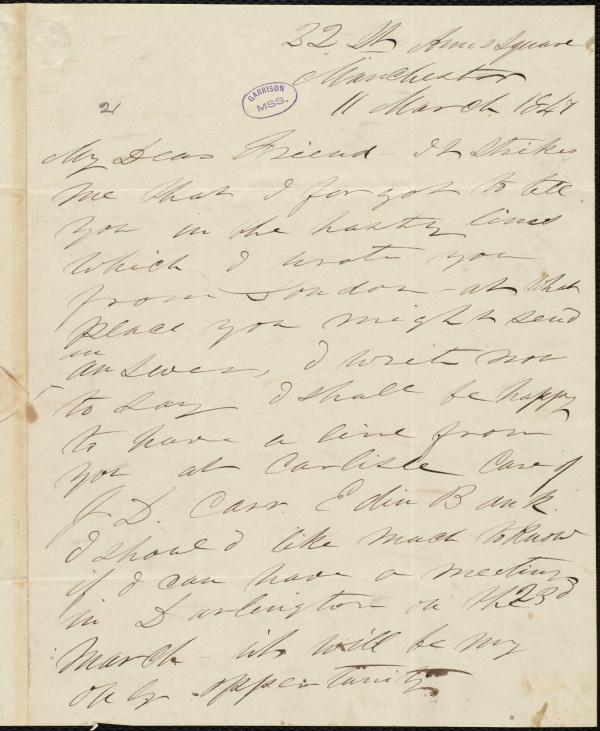 22 St Anns Square
Manchester
11 March 1847
2
GARRISON
MSS.
My Dear Friend - It strikes
me that I forgot to tell
you in the hasty lines
which I wrote you
from London - at what
place you might send
an
answer, I write now
to say I shall be happy
to have a line from
you at Carlisle Care of
J. D. Carr. Edin Bank.
I should like much to know
if I can have a meeting
in Darlington on the 23d
March it will be my
only oppertunity